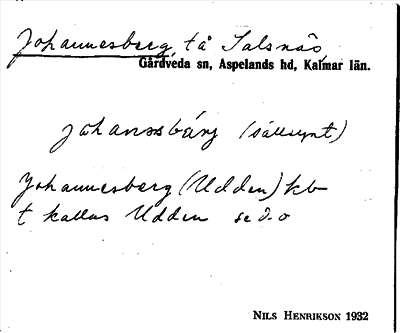 Johannesberg, tå Salsnäs,
Gårdveda sn, Aspelands hd, Kalmar län.
johansbärj (sällsynt)
Johannesberg (Udden) kb
t kallas Udden se d.o
NILS HENRIKSON 1932